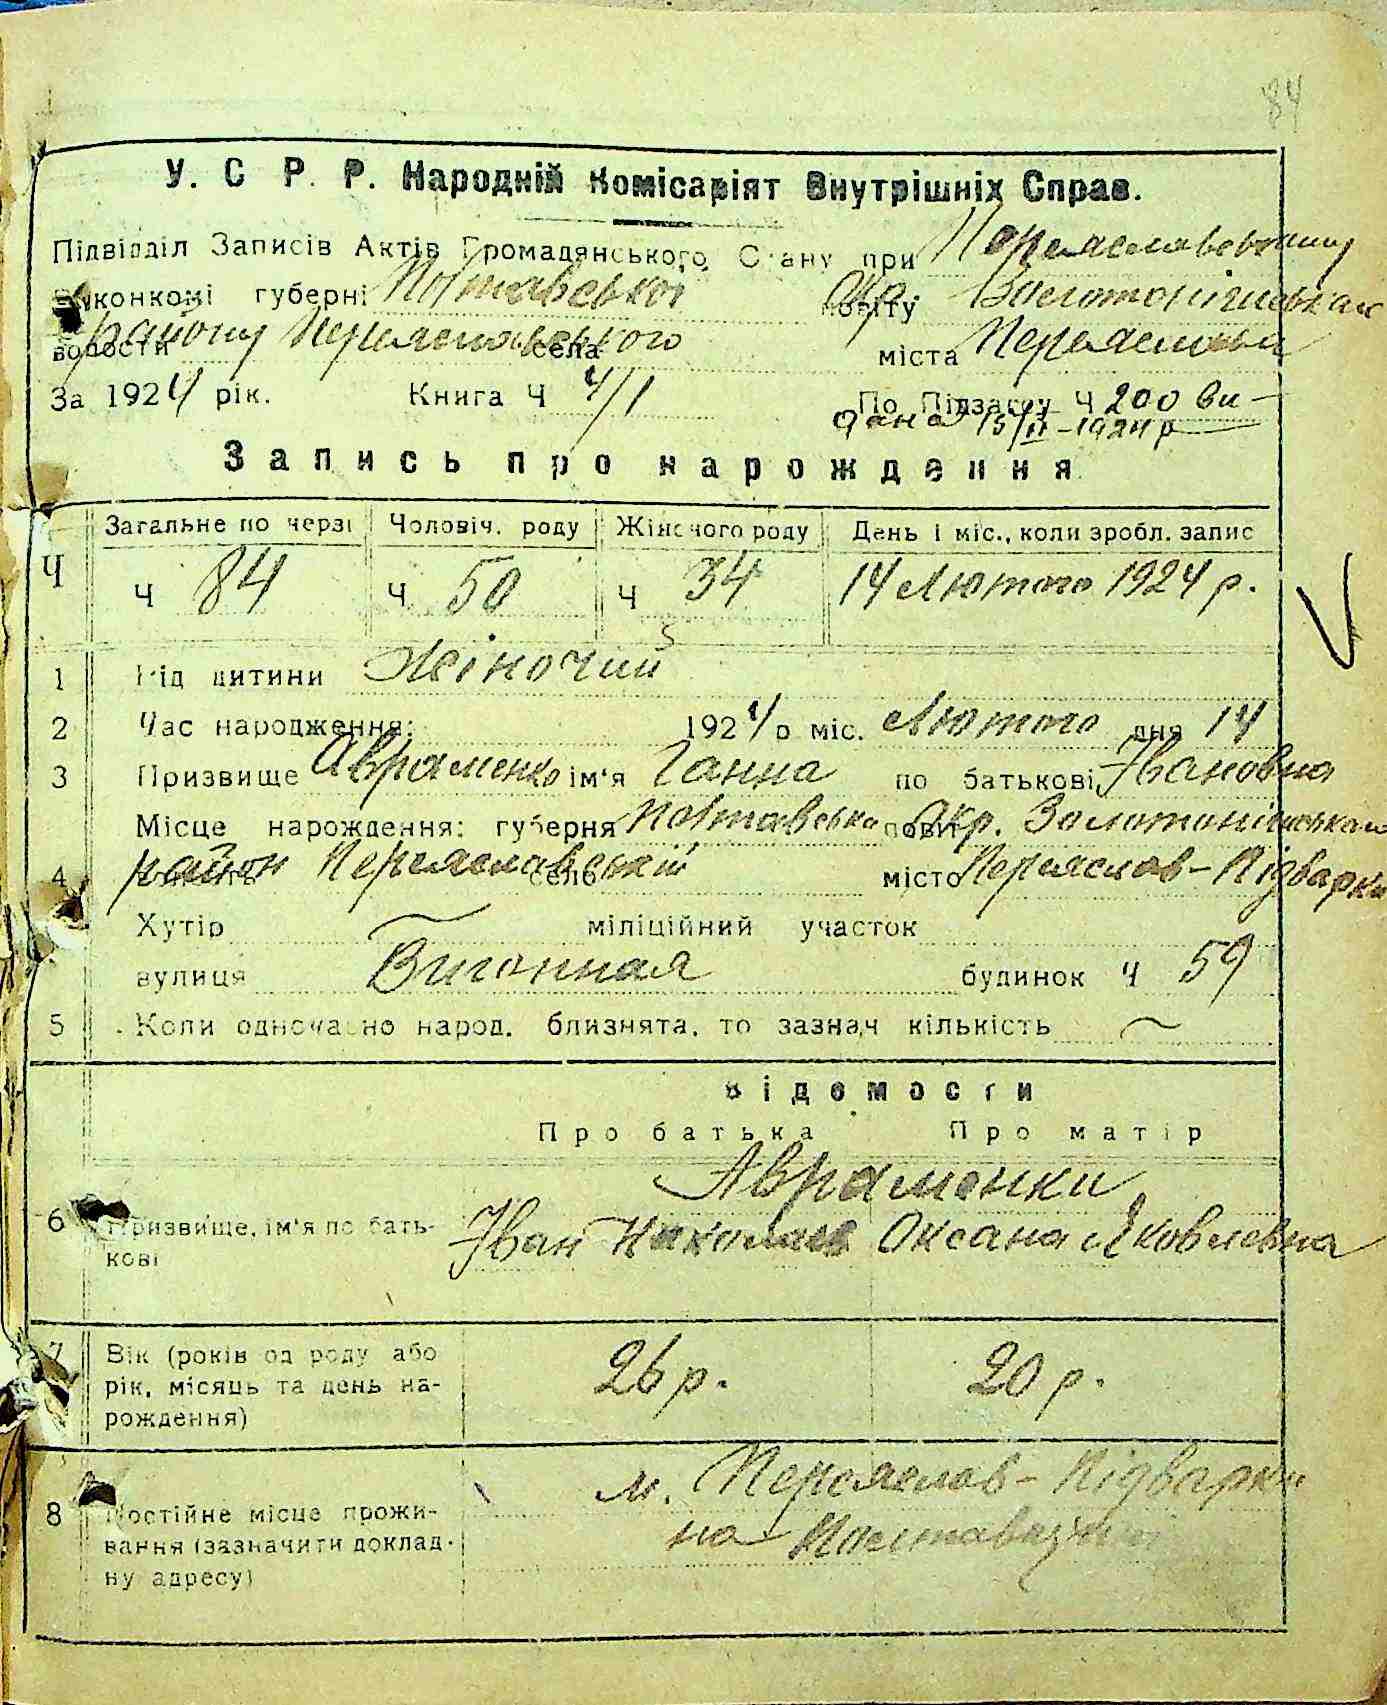 84
У. С Р. Р. Народній Комісаріят Внутрішніх Справ.
Підвідділ Записів Актів Громадянського Стану при Переяславському
Виконкомі губерні Полтавської повіту Окр. Золотонішська
волости району Переяславського села міста Переяслова
За 1924 рік. Книга Ч 4/1 По Підзагсу Ч 200 ви-
дана 15/II-1924 р
Запись про нарождення
Загальне по черзі Чоловіч. роду Жіночого роду День і міс., коли зробл. запис
Ч Ч 84 Ч 50 Ч 34 14 Лютого 1924 р.
1 Рід дитини Жіночий
2 Час народження: 1924 о міс. Лютого дня 14
3 Призвище Авраменко ім'я Ганна по батькові Івановна
Місце нарождення: губерня Полтавська повіт Окр. Золотонішська
4 район Переяславській село місто Переяслов-Підварки
Хутір міліційний участок
вулиця Вигонная будинок Ч 59
5 Коли одночасно народ. близнята, то зазнач кількість ~
Відомости
Про батька Про матір
Авраменки
6 Призвище, ім'я по бать- Іван Николаев Оксана Яковлевна
кові
7 Вік (років од роду або 26 р. 20 р.
рік, місяць та день на-
рождення)
м. Переяслов-Підварки
8 Постійне місце прожи- на
вання (зазначити доклад-
ну адресу)